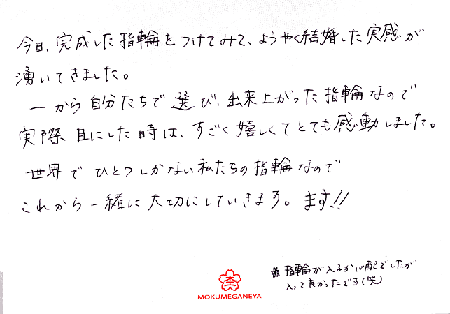 今日、完成した指輪をつけてみて、ようやく結婚した実感が
湧いてきました。
一から自分たちで選び、出来上がった指輪なので
実際目にした時は、すごく嬉しくてとても感動しました。
世界でひとつしかない私たちの指輪なので
これから一緒に大切にしていきます。ます!!
指輪が入るか心配でしたが
入って良かったです(笑)
MOKUMEGANEYA